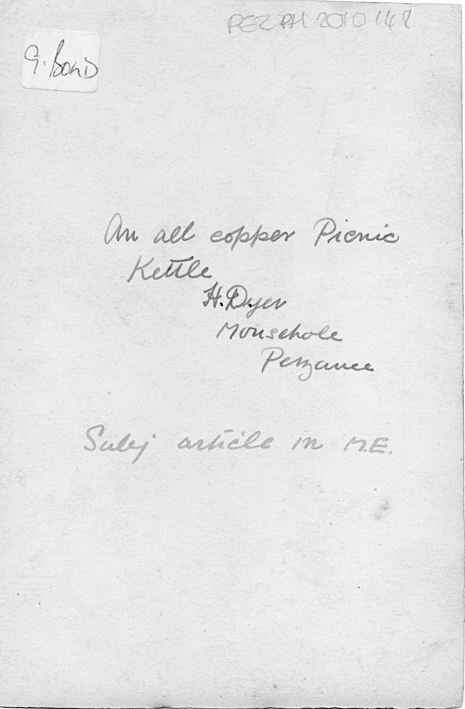 PEZPH 2010 148
G. Bond
An all copper Picnic
Kettle
H. Dyer
Mousehole
Penzance
Subj article in M.E.